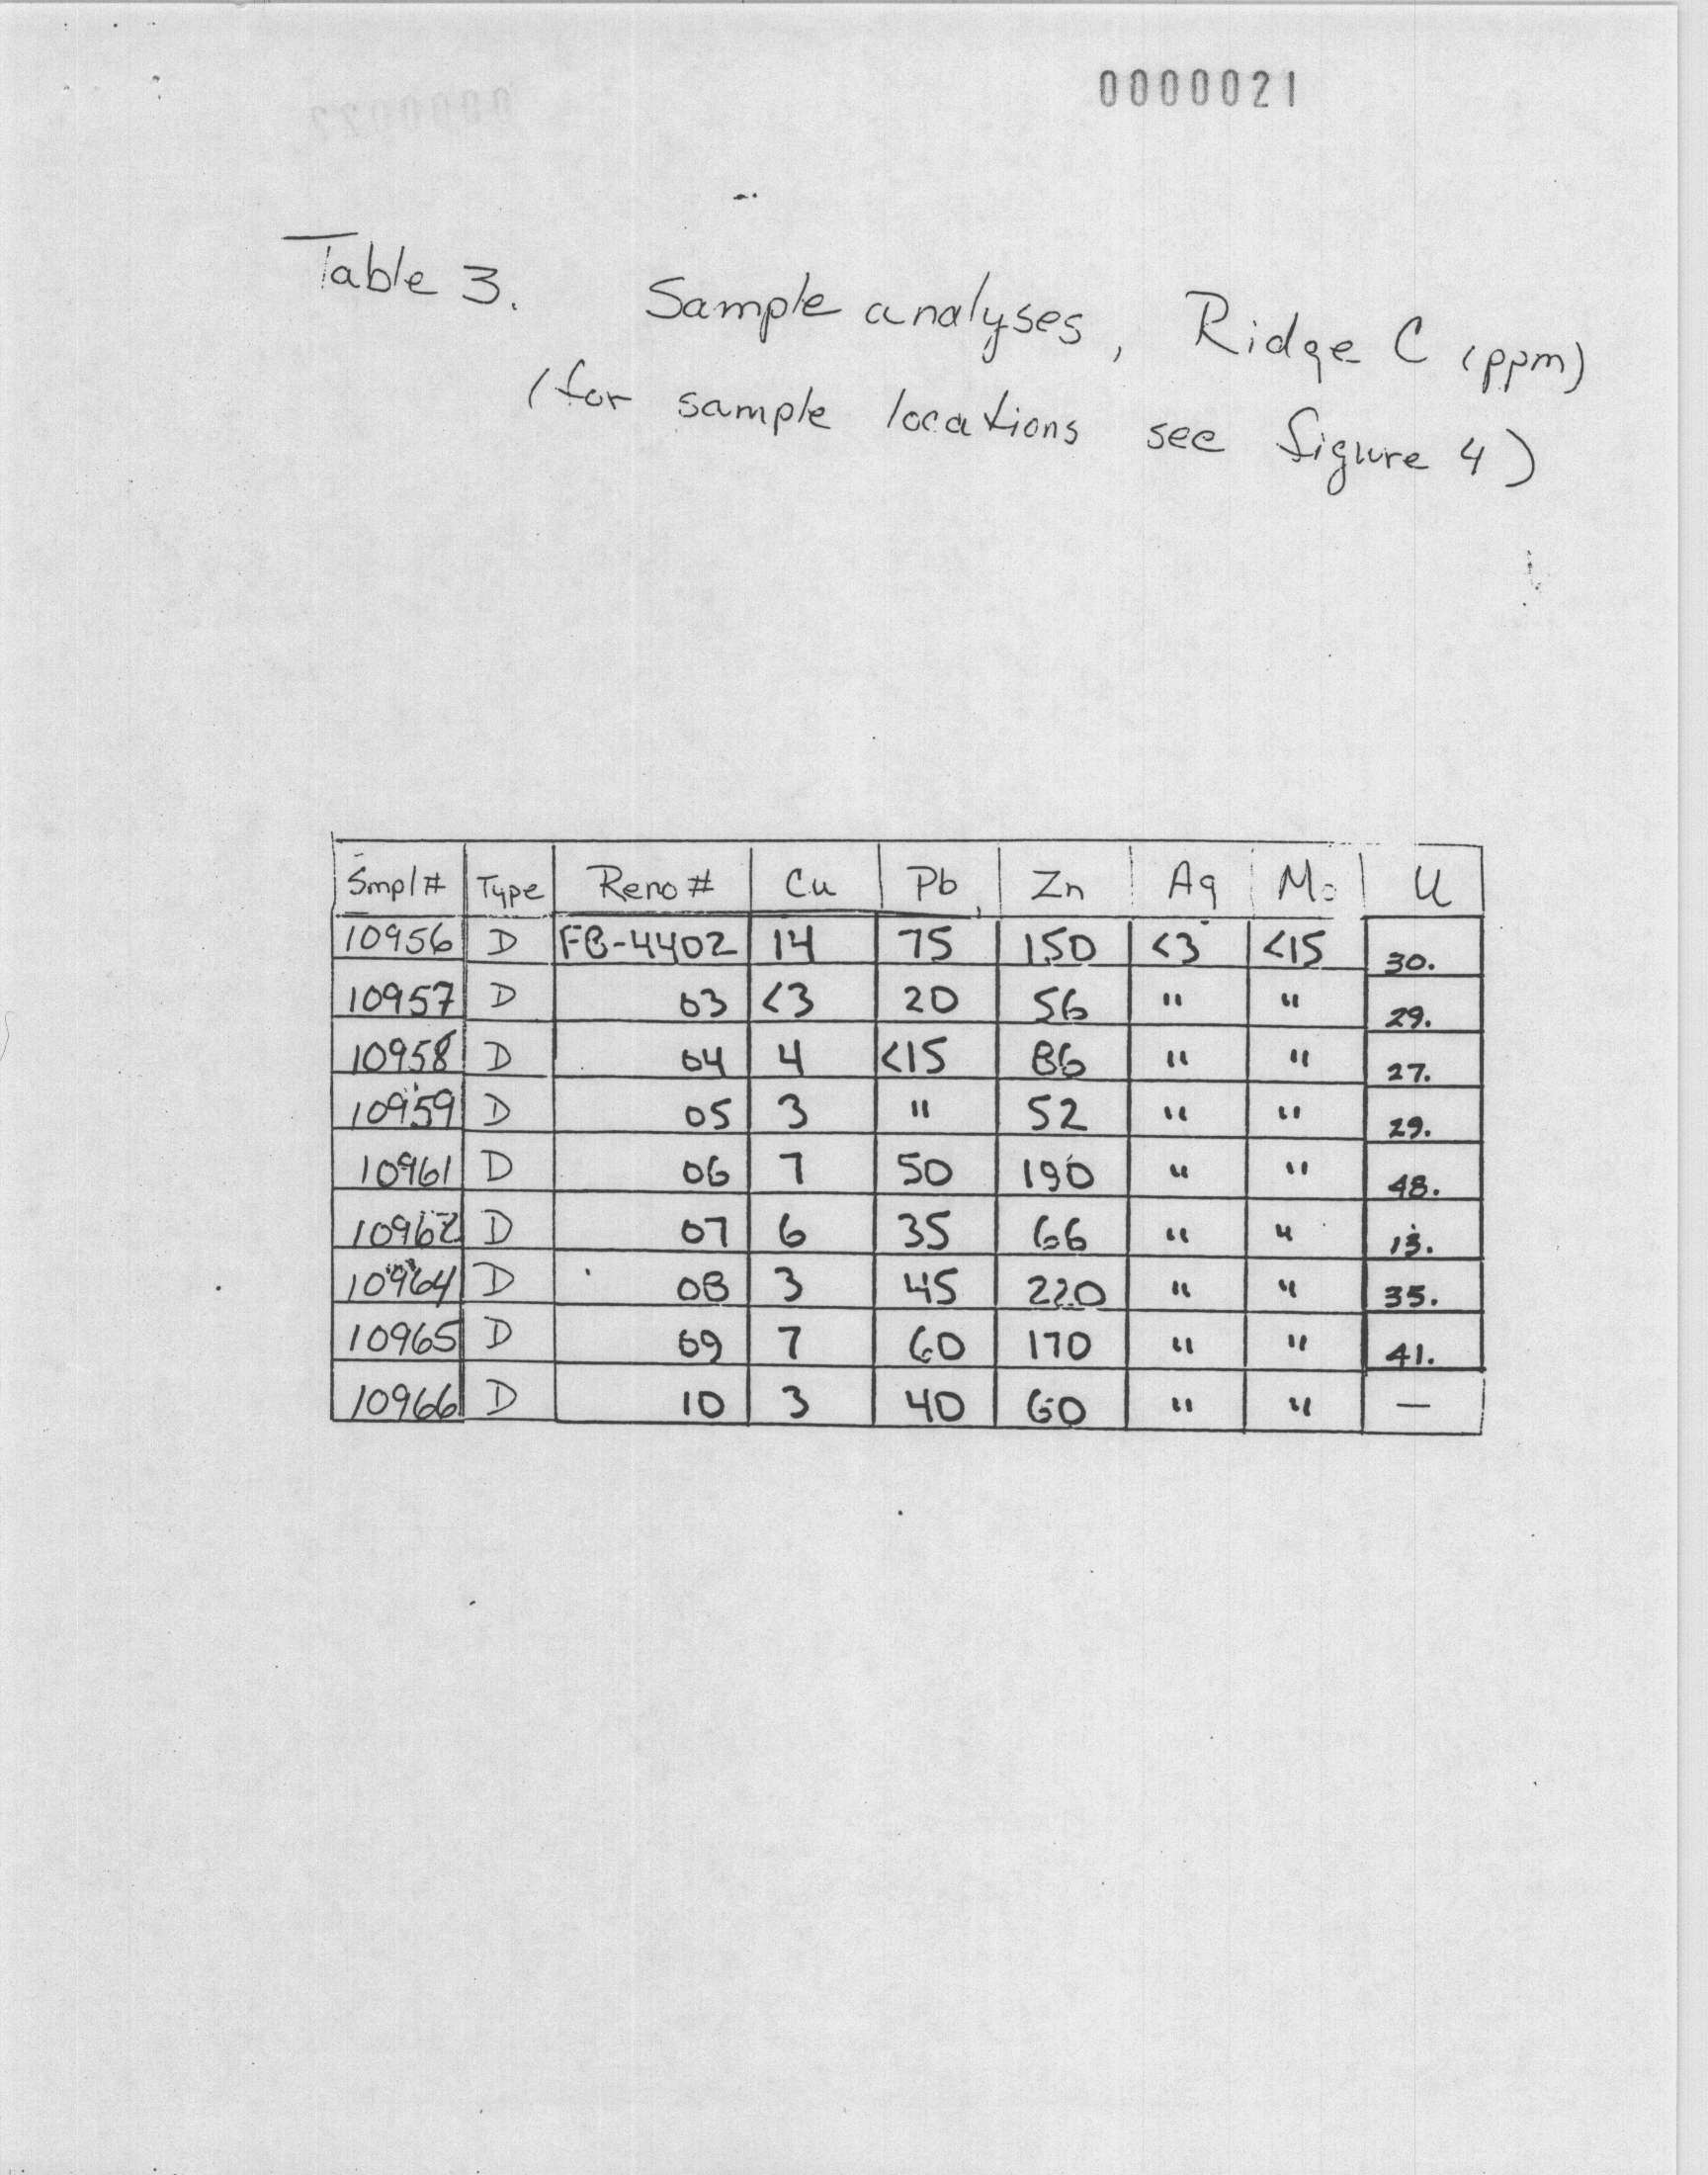 0000021
Table 3. Sample analyses, Ridge C (ppm)
(for sample locations see figure 4)
Smpl# Type Reno # Cu Pb Zn Ag Mo U
10956 D FB-4402 14 75 150 <3 <15 30.
10957 D 03 <3 20 56 " " 29.
10958 D 04 4 <15 86 " " 27.
10959 D 05 3 " 52 " " 29.
10961 D 06 7 50 190 " " 48.
10962 D 07 6 35 66 " " 13.
10964 D 08 3 45 220 " " 35.
10965 D 09 7 60 170 " " 41.
10966 D 10 3 40 60 " " —